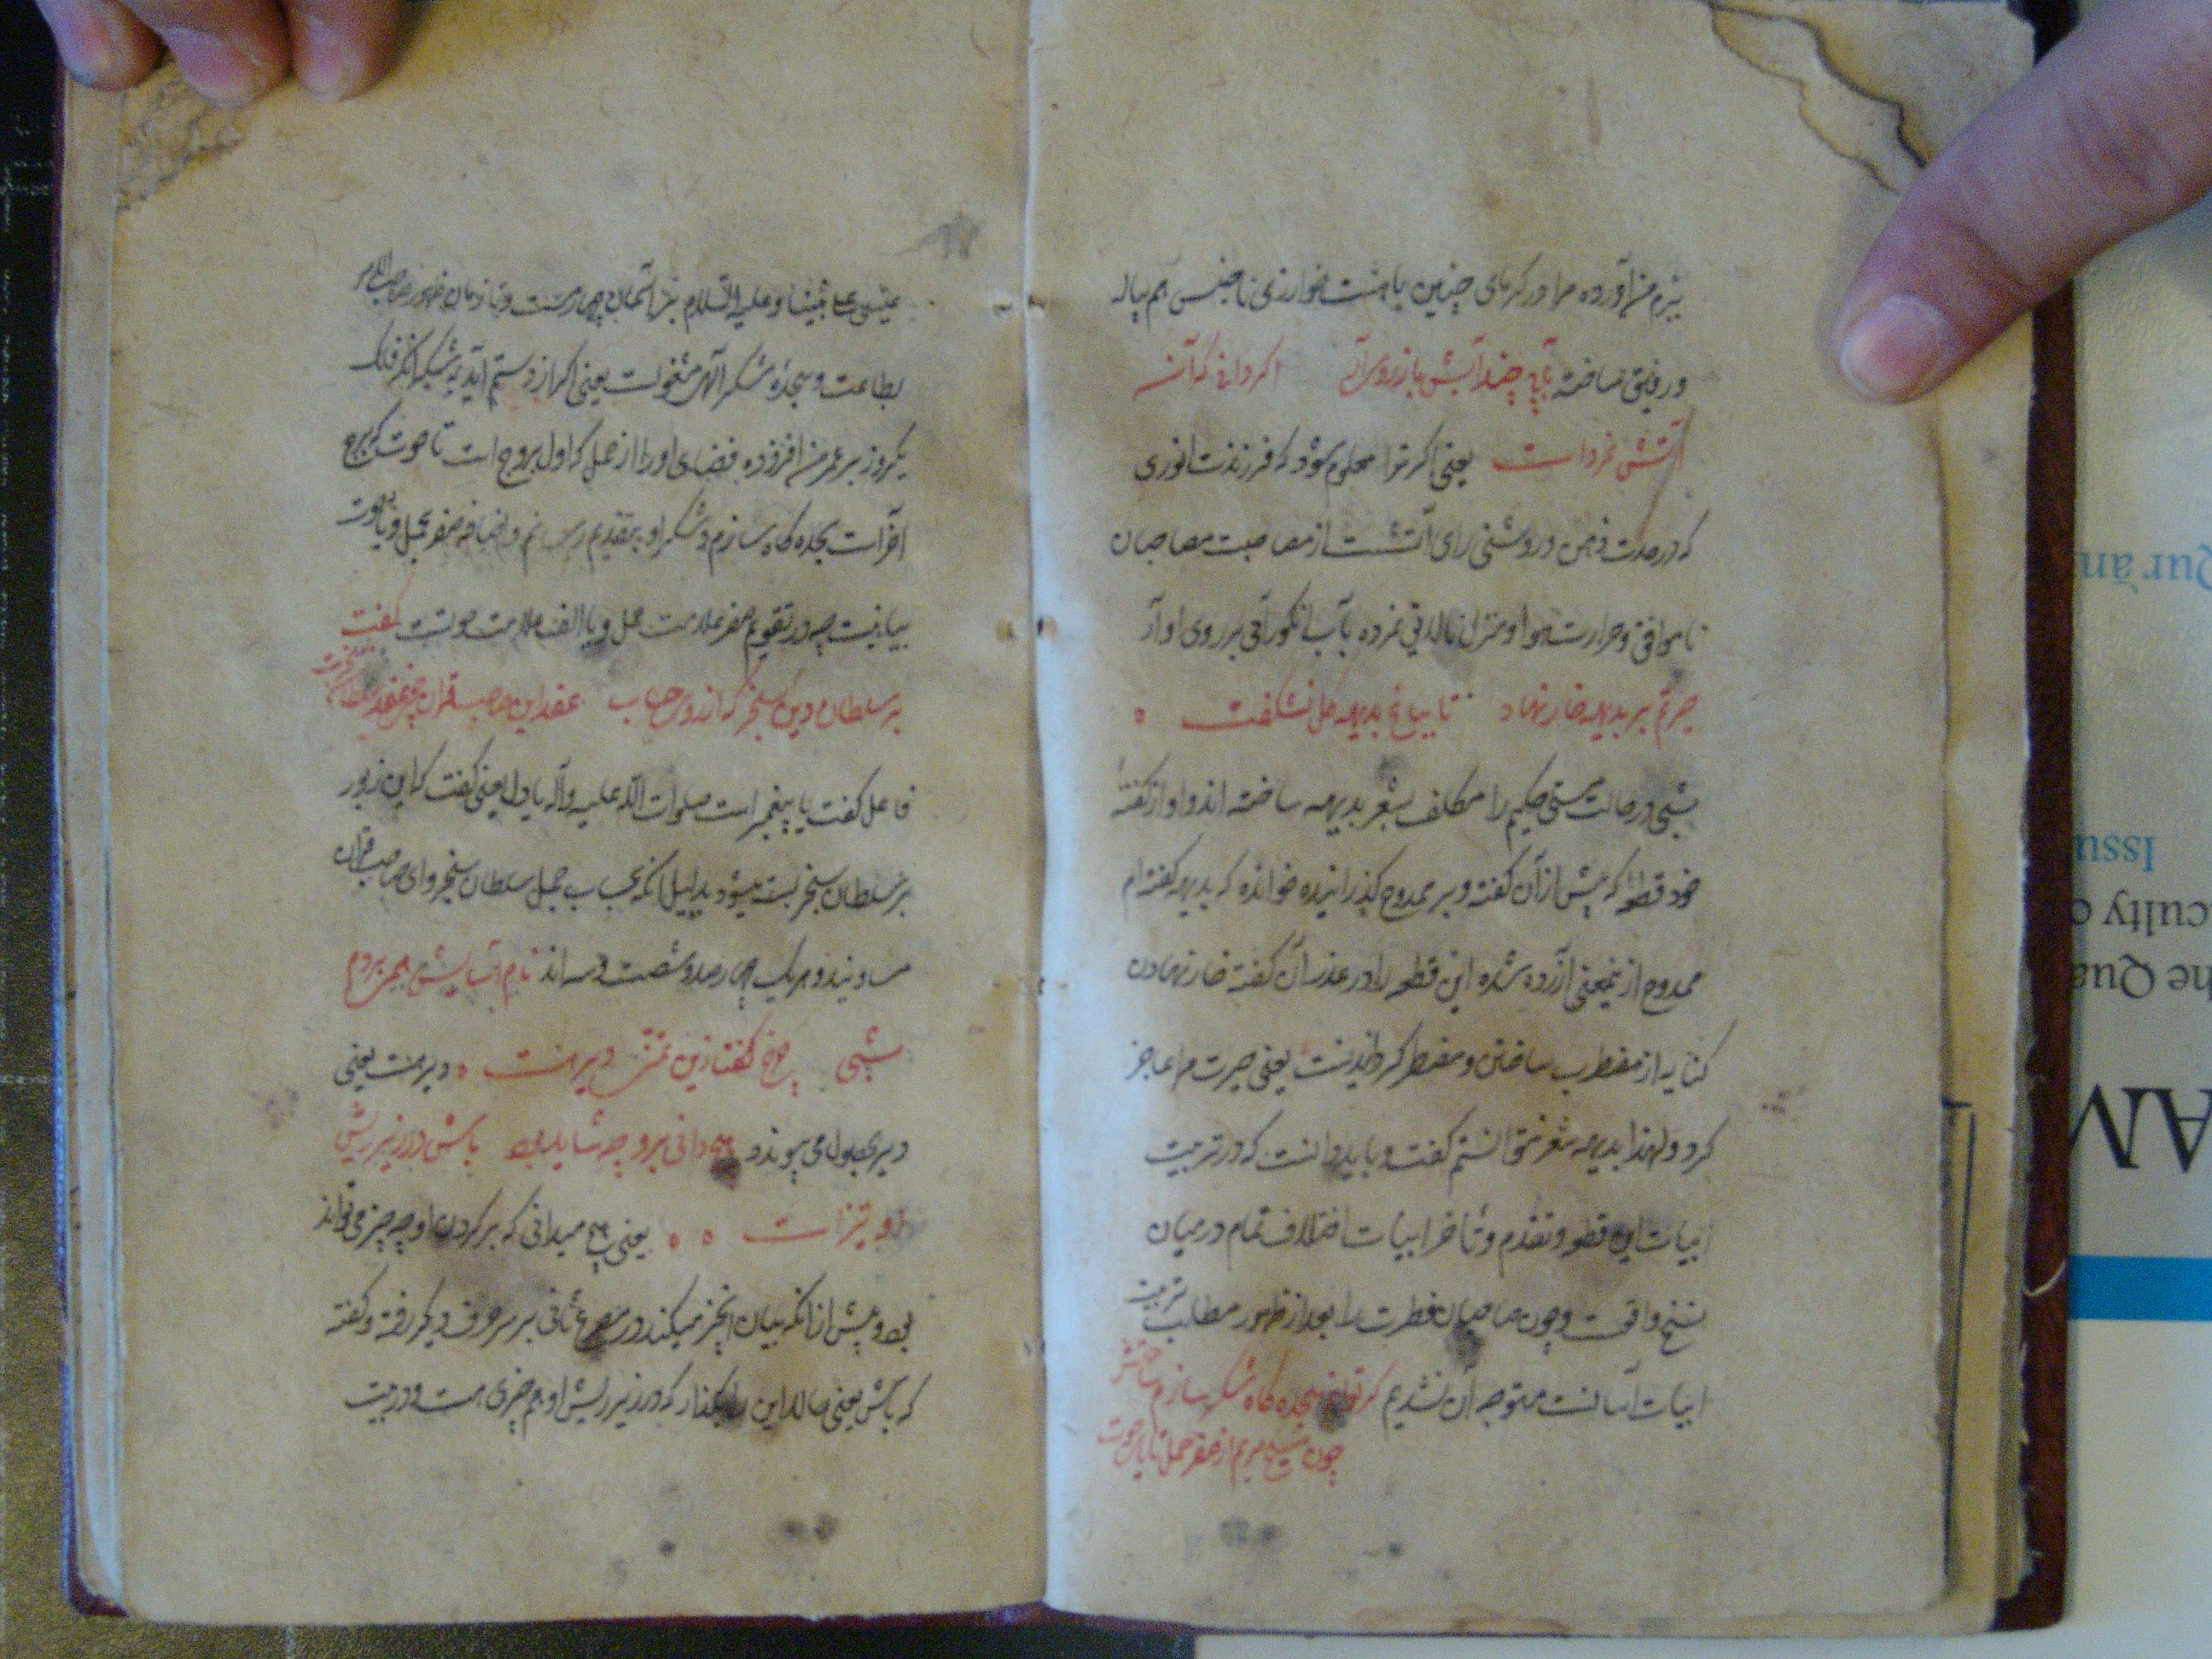 بزم من آورده مرا در کرمای چنین یا مشت خوارزی ناجنس هم پیاله
ورفیق ساخته آبی چند آبش بازروی آر اکر دانی که آن
آتش نمرداست یعنی اکر ترا معلوم شود که فرزندت انوری
که در حدت ذهن و روشنی رای آتشست از مصاحبت مصاحبان
ناموافق و حرارت هوا و منزل نالایق نمرده بآب انکور آبی بر روی او آر
حیرتم بر بدیهه خار نهاد تا بباغ بدیهه کل نشکفت
شبی در حالت مستی حکیم را مکلف بشعر بدیهه ساخته اند و او از کفتهٔ
خود قطعهٔ که پیش از آن کفته و بر ممدوح کذرانیده خوانده که بدیهه کفته ام
ممدوح ازینمعنی آزرده شده این قطعه را در عذر آن کفته خار نهادن
کنایه از مضطرب ساختن و مضطر کردانیدنست یعنی حیرت مرا عاجز
کرد و لهذا بدیهه شعر نمی توانستم کفت و باید دانست که در ترتیب
ابیات این قطعه و تقدم و تاخر ابیات اختلاف تمام در میان
نسخ واقعست و چون صاحبان فطرت را بعد از ظهور مطالب ترتیب
ابیات آسانست متوجه آن نشدیم کر توانم سجده کاه شکر سازم ساحتش
چون مسیح مریم از صفر حمل تا یای حوت
عیسی علی نبینا و علیه السلام بر آسمان چهارمست و تا زمان ظهور صاحب الامر
بطاعت و سجدهٔ شکر الهی مشغولست یعنی اکر از دستم آید بشکر آنکه فلک
یکروز بر عمر من افزوده فضای او را از حمل که اول بروج است تا حوت که برج
آخر است سجده کاه سازم و شکر او بتقدیم رسانم و اضافه صفر بحمل و یا بحوت
بیانیست چه در تقویم صفر علامت حمل و یا الف علامت حوتست کفت
بر سلطان دین سنجر که از روی حساب عقد این صاحب قران چون عقد سلطان سنجرست
فاعل کفت یا پیغمبر است صلوات الله علیه و آله یا دل یعنی کفت که این زیور
بر سلطان سنجر بسته میشود بدلیل آنکه بحساب جمل سلطان سنجر و ای صاحب قران
مساویند و هر یک چهار صد و شصت و سه اند نام آسایش همی بردم
شبی چرخ کفتا زین تمنی دیر هست دیر هست یعنی
دیر بحصول می پیوندد هیچ دانی بر و چه شاید بود باش در زیر ریش
او تیز است یعنی هیچ میدانی که بر کردن او چه چیز می تواند
بود و پیش از آنکه بیان آنچیز میکند در مصرع ثانی بر سر حرف دیکر رفته و کفته
که باش یعنی حالا این را بکذار که در زیر ریش او هم چیزی هست و در بیت